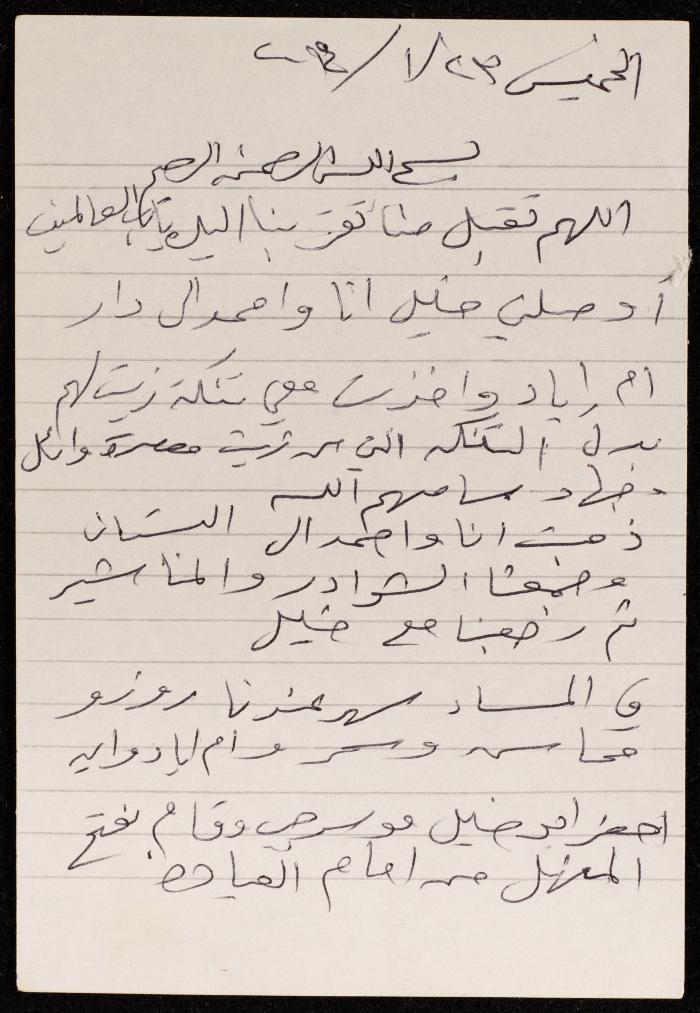 الخميس ٢٣/١/
بسم الله الرحمن الرحيم
اللهم تقبل منا تقربنا اليك يا رب العالمين
أوصلني خليل انا واحمد الى دار
ام اياد واخذت معي تنكة زيت لهم
بدل التنكه التي من زيت معصرة وائل
وجهاد سامحهم الله
ذهبت انا واحمد الى البستان
وجمعنا الشوادر والمناشير
ثم رجعنا مع خليل
في المساء سهر عندنا روزو
محاسن وسحر وام اياد وايه
احضر ابو خليل موسرجي وقام بفتح
المنهل من امام العياده